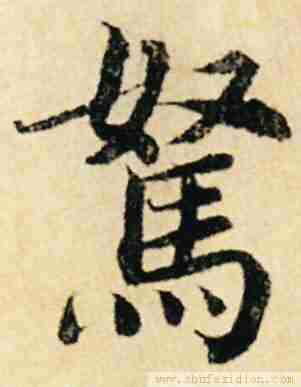 駑
www.shufazidian.com